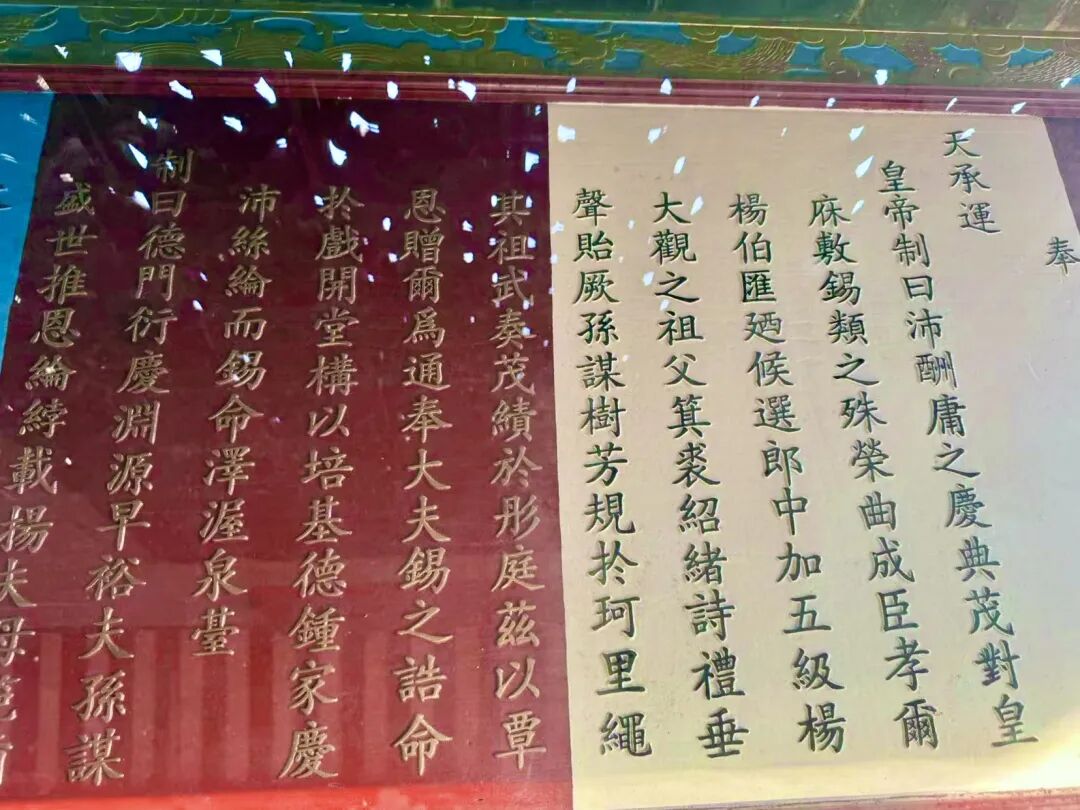 奉
天承運
皇帝制曰沛酬庸之慶典茂對皇
庥敷錫類之殊榮曲成臣孝爾
楊伯匯廼候選郎中加五級楊
大觀之祖父箕裘紹緒詩禮垂
聲貽厥孫謀樹芳規於珂里繩
其祖武奏茂績於彤庭茲以覃
恩贈爾爲通奉大夫錫之誥命
於戲開堂構以培基德鍾家慶
沛絲綸而錫命澤渥泉臺
制曰德門衍慶淵源早裕夫孫謀
盛世推恩綸綍載揚夫母範爾